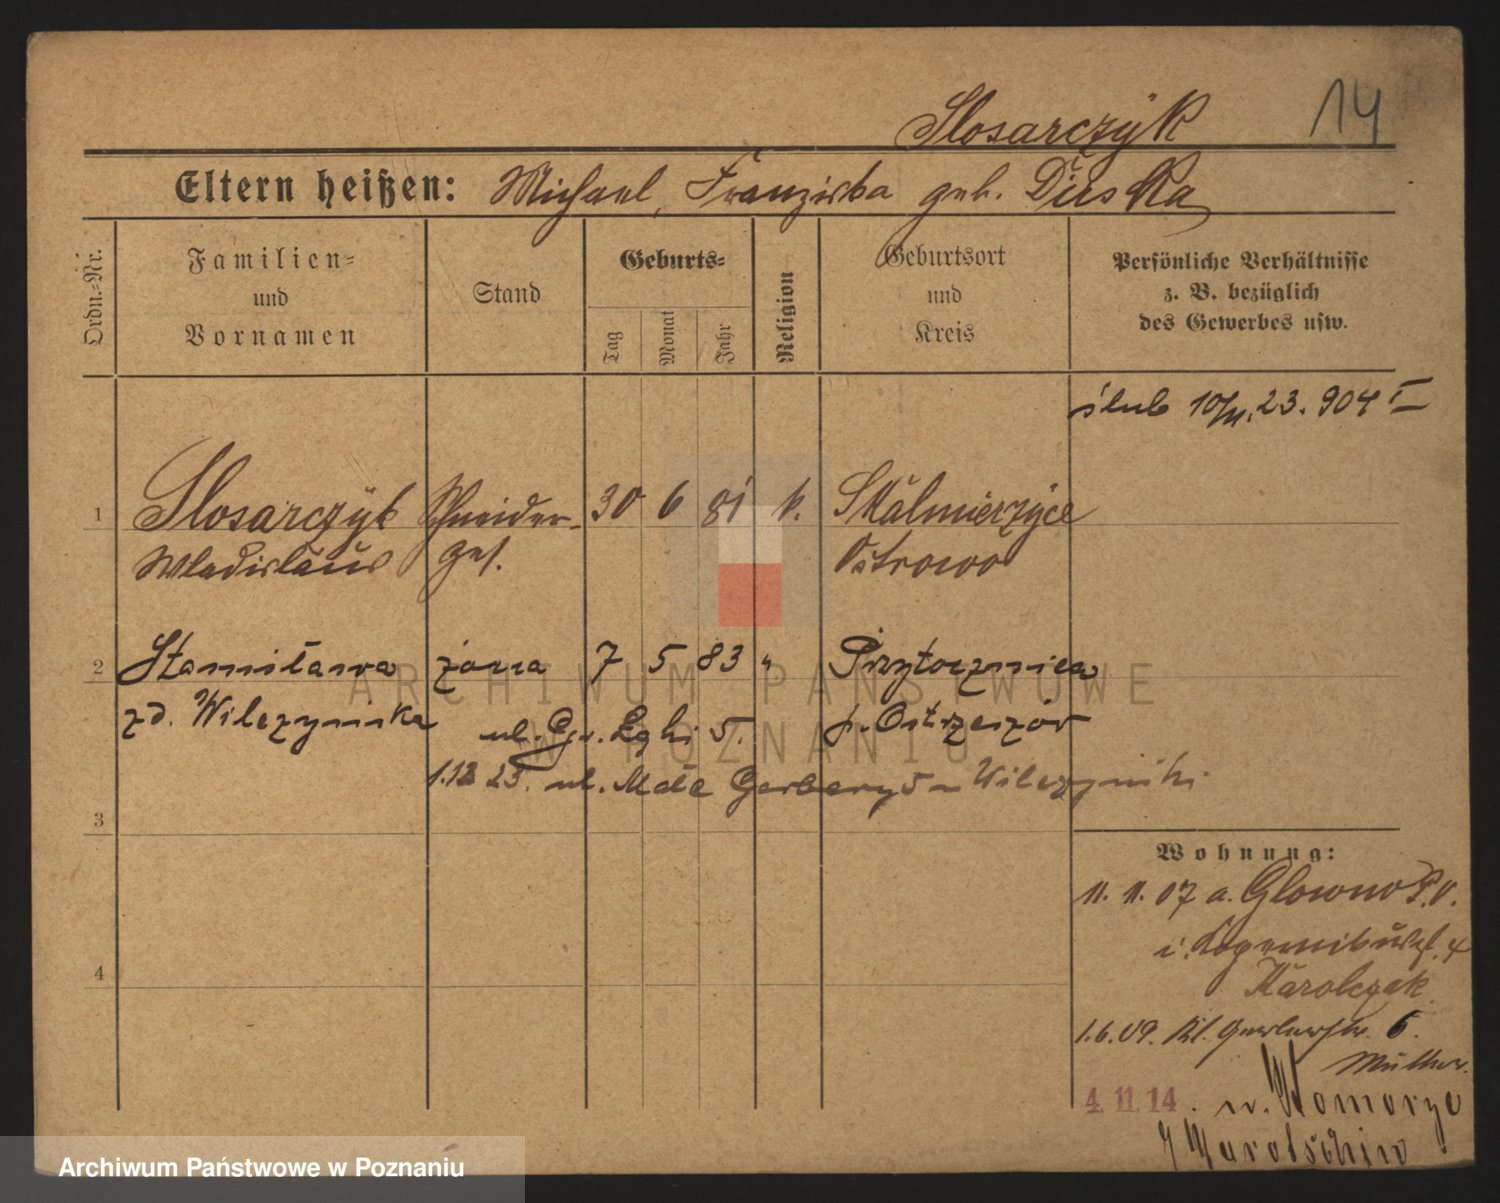 14
Slosarczyk
Eltern heißen: Michael, Franziska geb. Duska
Ordn.-Nr.
Familien-
und
Vornamen
Stand
Geburts-
Tag
Monat
Jahr
Religion
Geburtsort
und
Kreis
Persönliche Verhältnisse
z. B. bezüglich
des Gewerbes usw.
ślub 10/11.23. 904 I
1 Slosarczyk Schneider- 30 6 81 k. Skalmierzyce
Wladislaus ges. Ostrowo
2 Stanisława żona 7 5 83 " Przytocznica
zd. Wilczyńska p. Ostrzeszów
ul. 5.
1.12 23. ul. Małe Garbary 5 Wilczyński
3
4
Wohnung:
11. 11. 07 a. Glowno P.O.
Kopernikusstr. 4
Karolczak
1.6.09. Kl. Gerberstr. 6.
Müller.
4. 11. 14. n.
Archiwum Państwowe
w Poznaniu
Archiwum Państwowe w Poznaniu